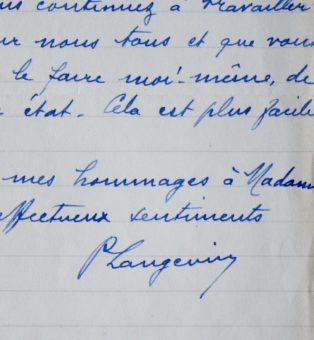 us continuez à travailler
ur nous tous et que vous
le faire moi-même, de
état. Cela est plus facile
mes hommages à Madame
effectueux sentiments
P Langevin